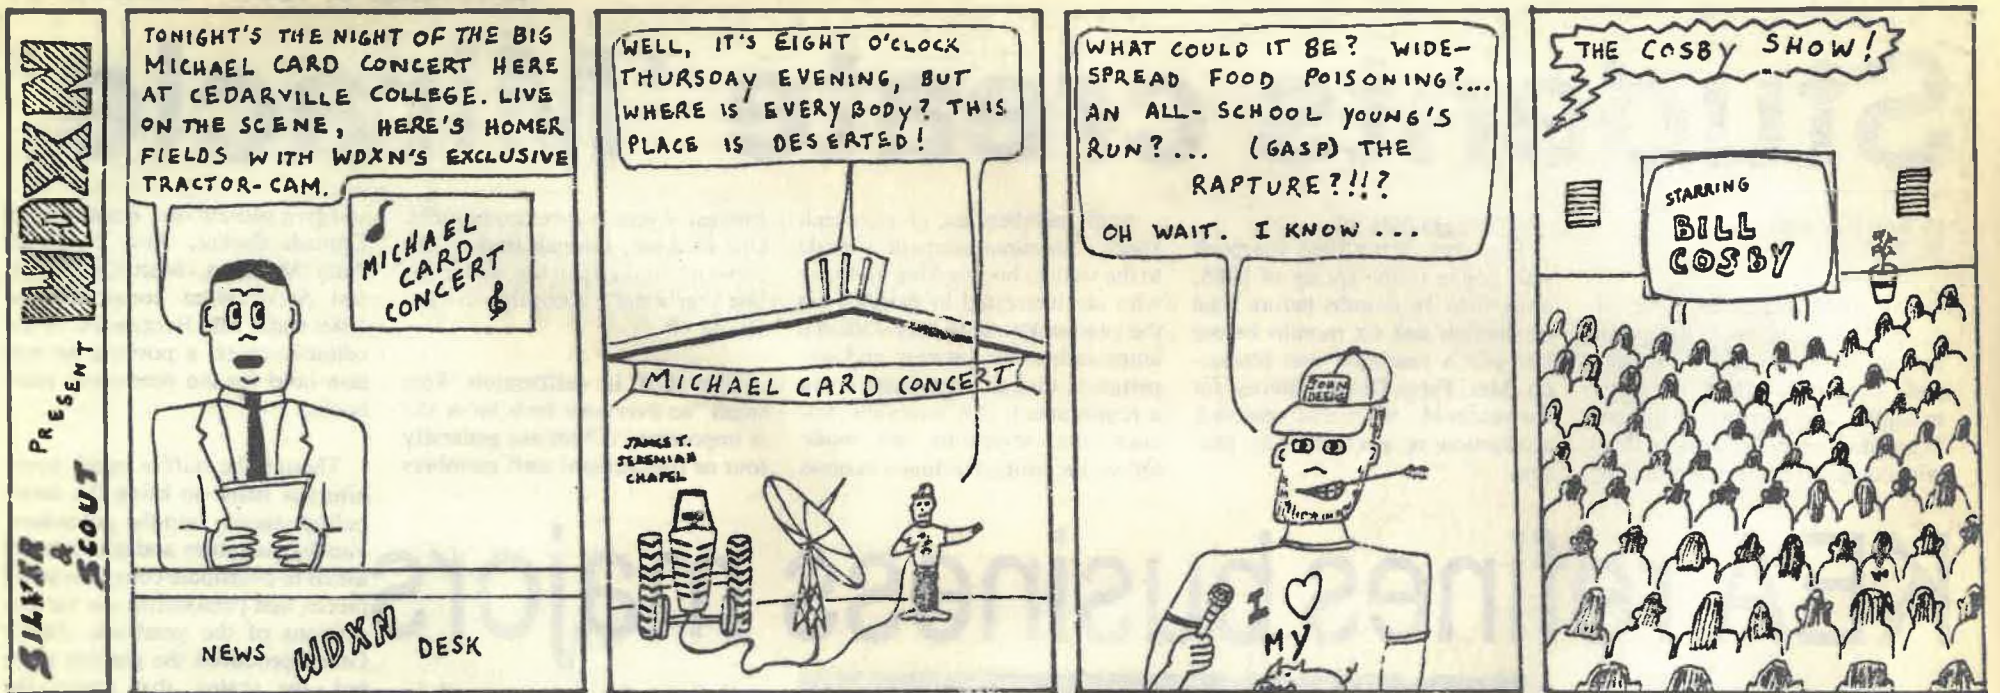 WDXN
SILVER & SCOUT PRESENT
TONIGHT'S THE NIGHT OF THE BIG
MICHAEL CARD CONCERT HERE
AT CEDARVILLE COLLEGE. LIVE
ON THE SCENE, HERE'S HOMER
FIELDS WITH WDXN'S EXCLUSIVE
TRACTOR-CAM.
MICHAEL
CARD
CONCERT
NEWS WDXN DESK
WELL, IT'S EIGHT O'CLOCK
THURSDAY EVENING, BUT
WHERE IS EVERYBODY? THIS
PLACE IS DESERTED!
MICHAEL CARD CONCERT
JAMES T.
JEREMIAH
CHAPEL
WHAT COULD IT BE? WIDE-
SPREAD FOOD POISONING?...
AN ALL-SCHOOL YOUNG'S
RUN?... (GASP) THE
RAPTURE?!!?
OH WAIT. I KNOW...
JOHN
I ♡
MY
THE COSBY SHOW!
STARRING
BILL
COSBY